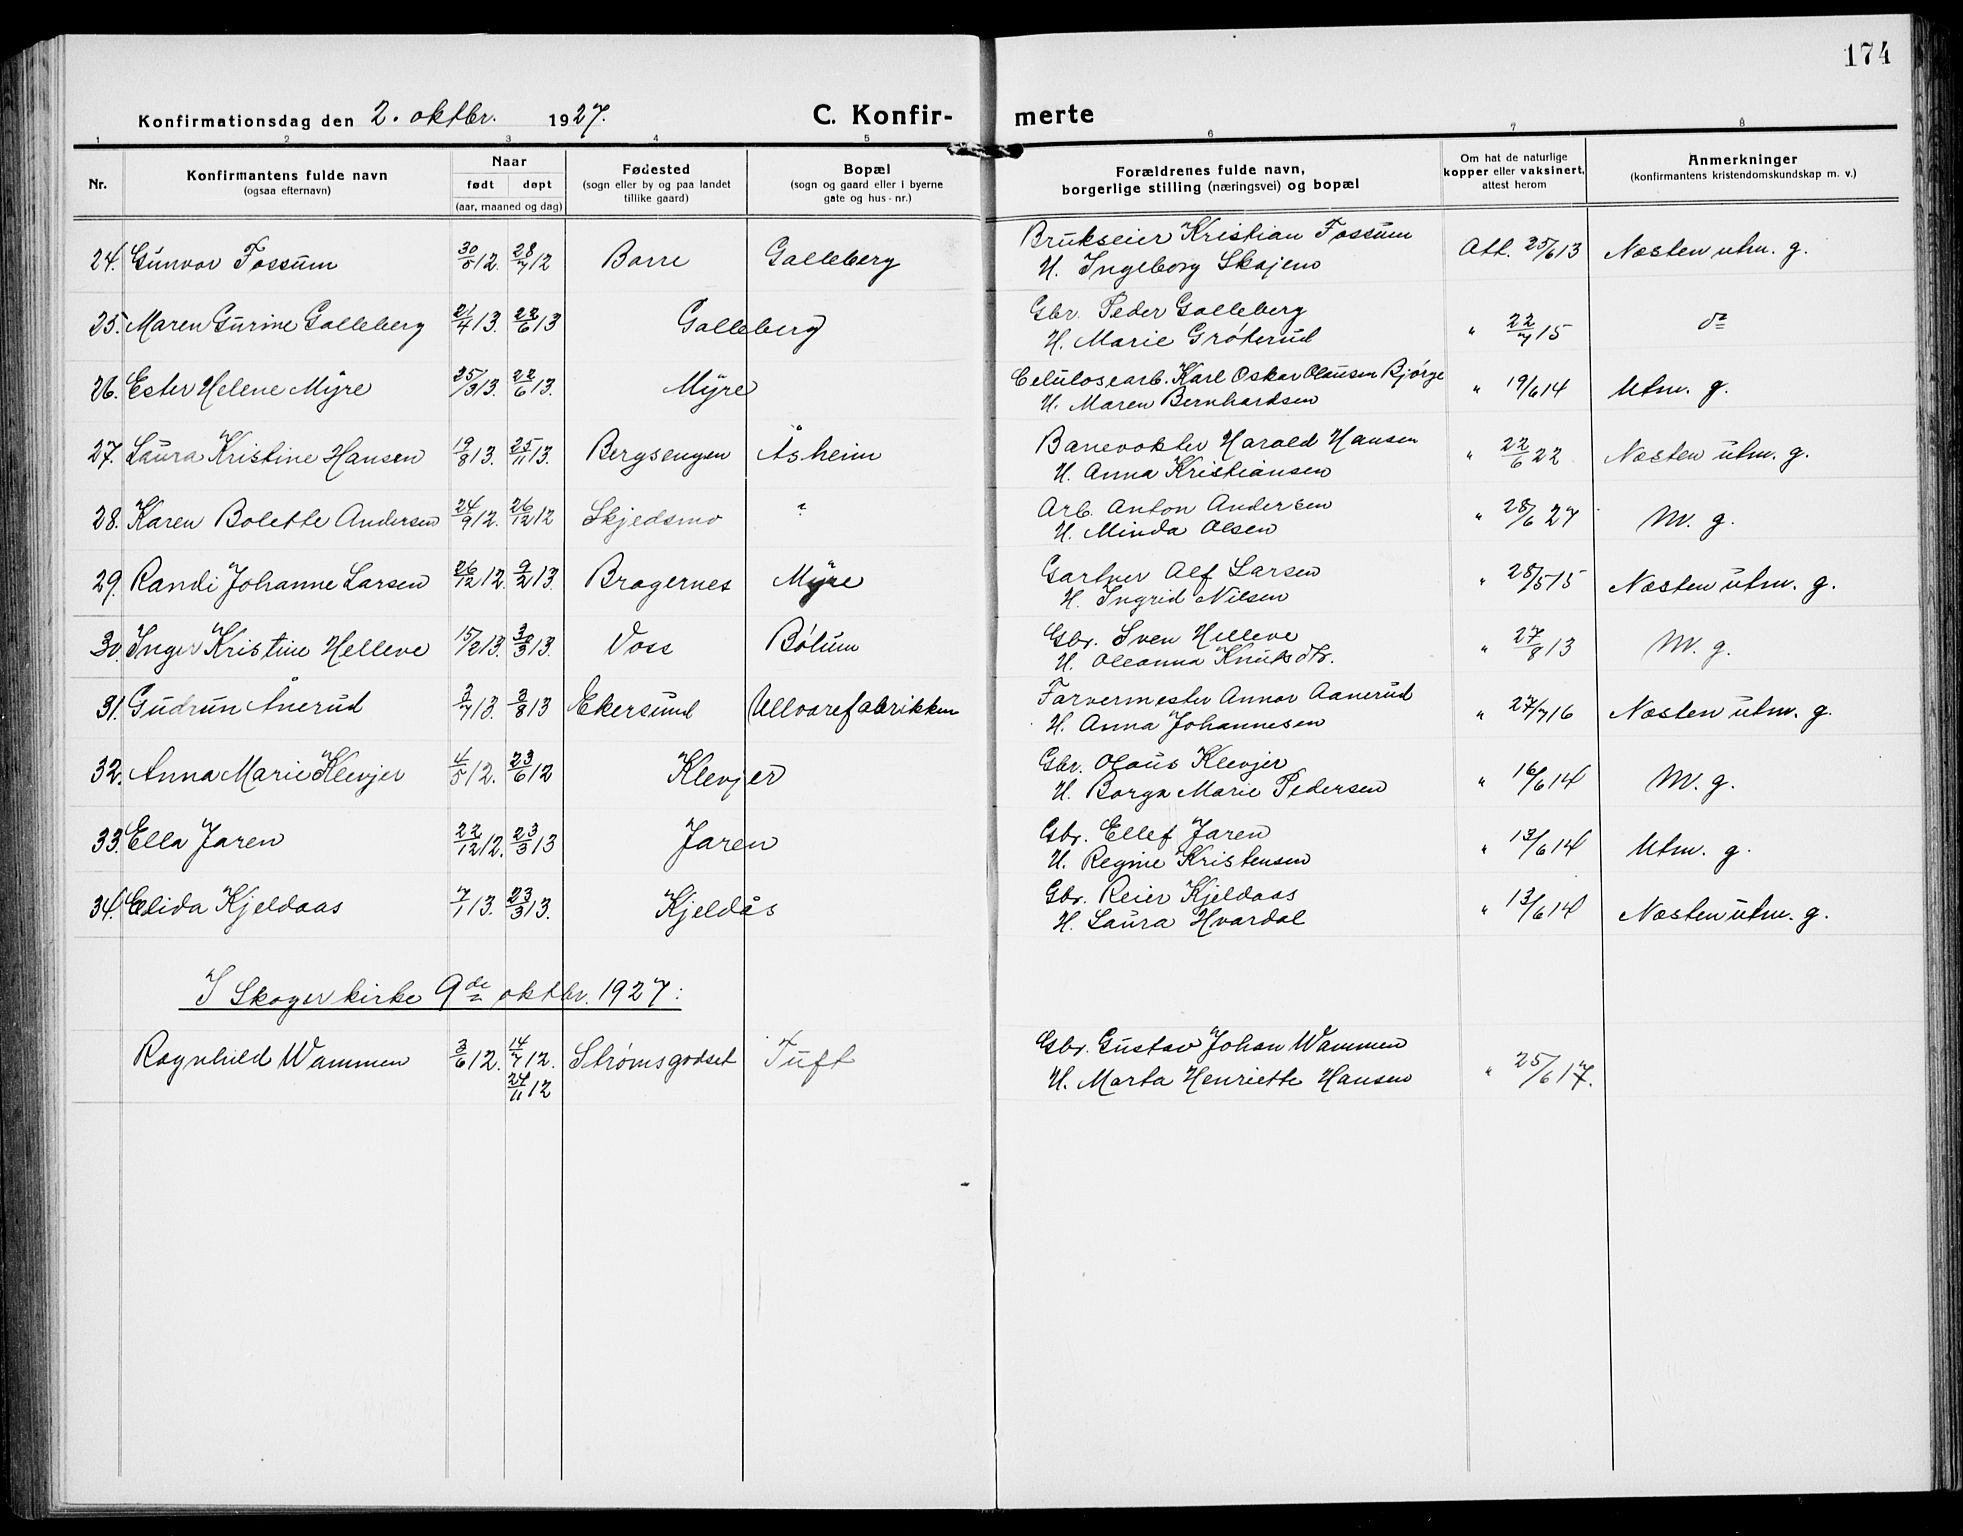 174
Konfirmationsdag den 2. oktbr. 1927. C. Konfirmerte
1 2 3 4 5 6 7 8
Nr. Konfirmantens fulde navn (ogsaa efternavn) Naar født døpt (aar, maaned og dag) Fødested (sogn eller by og paa landet tillike gaard) Bopæl (sogn og gaard eller i byerne gate og hus-nr.) Forældrenes fulde navn, borgerlige stilling (næringsvei) og bopæl Om hat de naturlige kopper eller vaksinert, attest herom Anmerkninger (konfirmantens kristendomskundskap m. v.)
24. Gunvor Fossum 30/5 12. 28/7 12 Borre Galleberg Brukseier Kristian Fossum Att. 25/6 13 Næsten utm. g.
H. Ingeborg Skajem
25. Maren Gurine Galleberg 21/4 13. 22/6 13 Galleberg Gbr. Peder Galleberg " 22/7 15 do
H. Marie Grøterud
26. Ester Helene Myre 25/3 13. 22/6 13. Myre Celulosearb. Karl Oskar Olausen Bjørge " 19/6 14 Utm. g.
H. Maren Bernhardsen
27. Laura Kristine Hansen 19/8 13. 25/11 13. Bergsengen Åsheim Banevokter Harald Hansen " 22/6 22 Næsten utm. g.
H. Anna Kristiansen
28. Karen Bolette Andersen 24/9 12. 26/12 12 Skjedsmo " Arb. Anton Andersen " 28/6 27 M. g.
H. Minda Olsen
29. Randi Johanne Larsen 26/12 12. 9/2 13. Bragernes Myre Gartner Alf Larsen " 28/5 15 Næsten utm. g.
H. Ingrid Nilsen
30. Inger Kristine Helleve 15/2 13. 3/3 13. Voss Bølum Gbr. Sven Helleve " 27/8 13 M. g.
H. Oleanna Knutsdtr.
31. Gudrun Ånerud 3/7 13. 3/8 13 Ekersund Ullvarefabrikken Farvermester Annar Aanerud " 27/7 16 Næsten utm. g.
H. Anna Johannesen
32. Anna Marie Klevjer 4/5 12. 23/6 12 Klevjer Gbr. Olaus Klevjer " 16/6 14 M. g.
H. Borga Marie Pedersen
33. Ella Jaren 22/12 12. 23/3 13 Jaren Gbr. Ellef Jaren " 13/6 14 Utm. g.
H. Regine Kristensen
34. Elida Kjeldaas 7/1 13. 23/3 13. Kjeldås Gbr. Reier Kjeldaas " 13/6 14 Næsten utm. g.
H. Laura Hvardal
I Skoger kirke 9de oktbr. 1927:
Ragnhild Wammen 3/6 12. 14/7 12. Strømsgodset Tuft Gbr. Gustav Johan Wammen " 25/6 17.
24/11 12 H. Marta Henriette Hansen